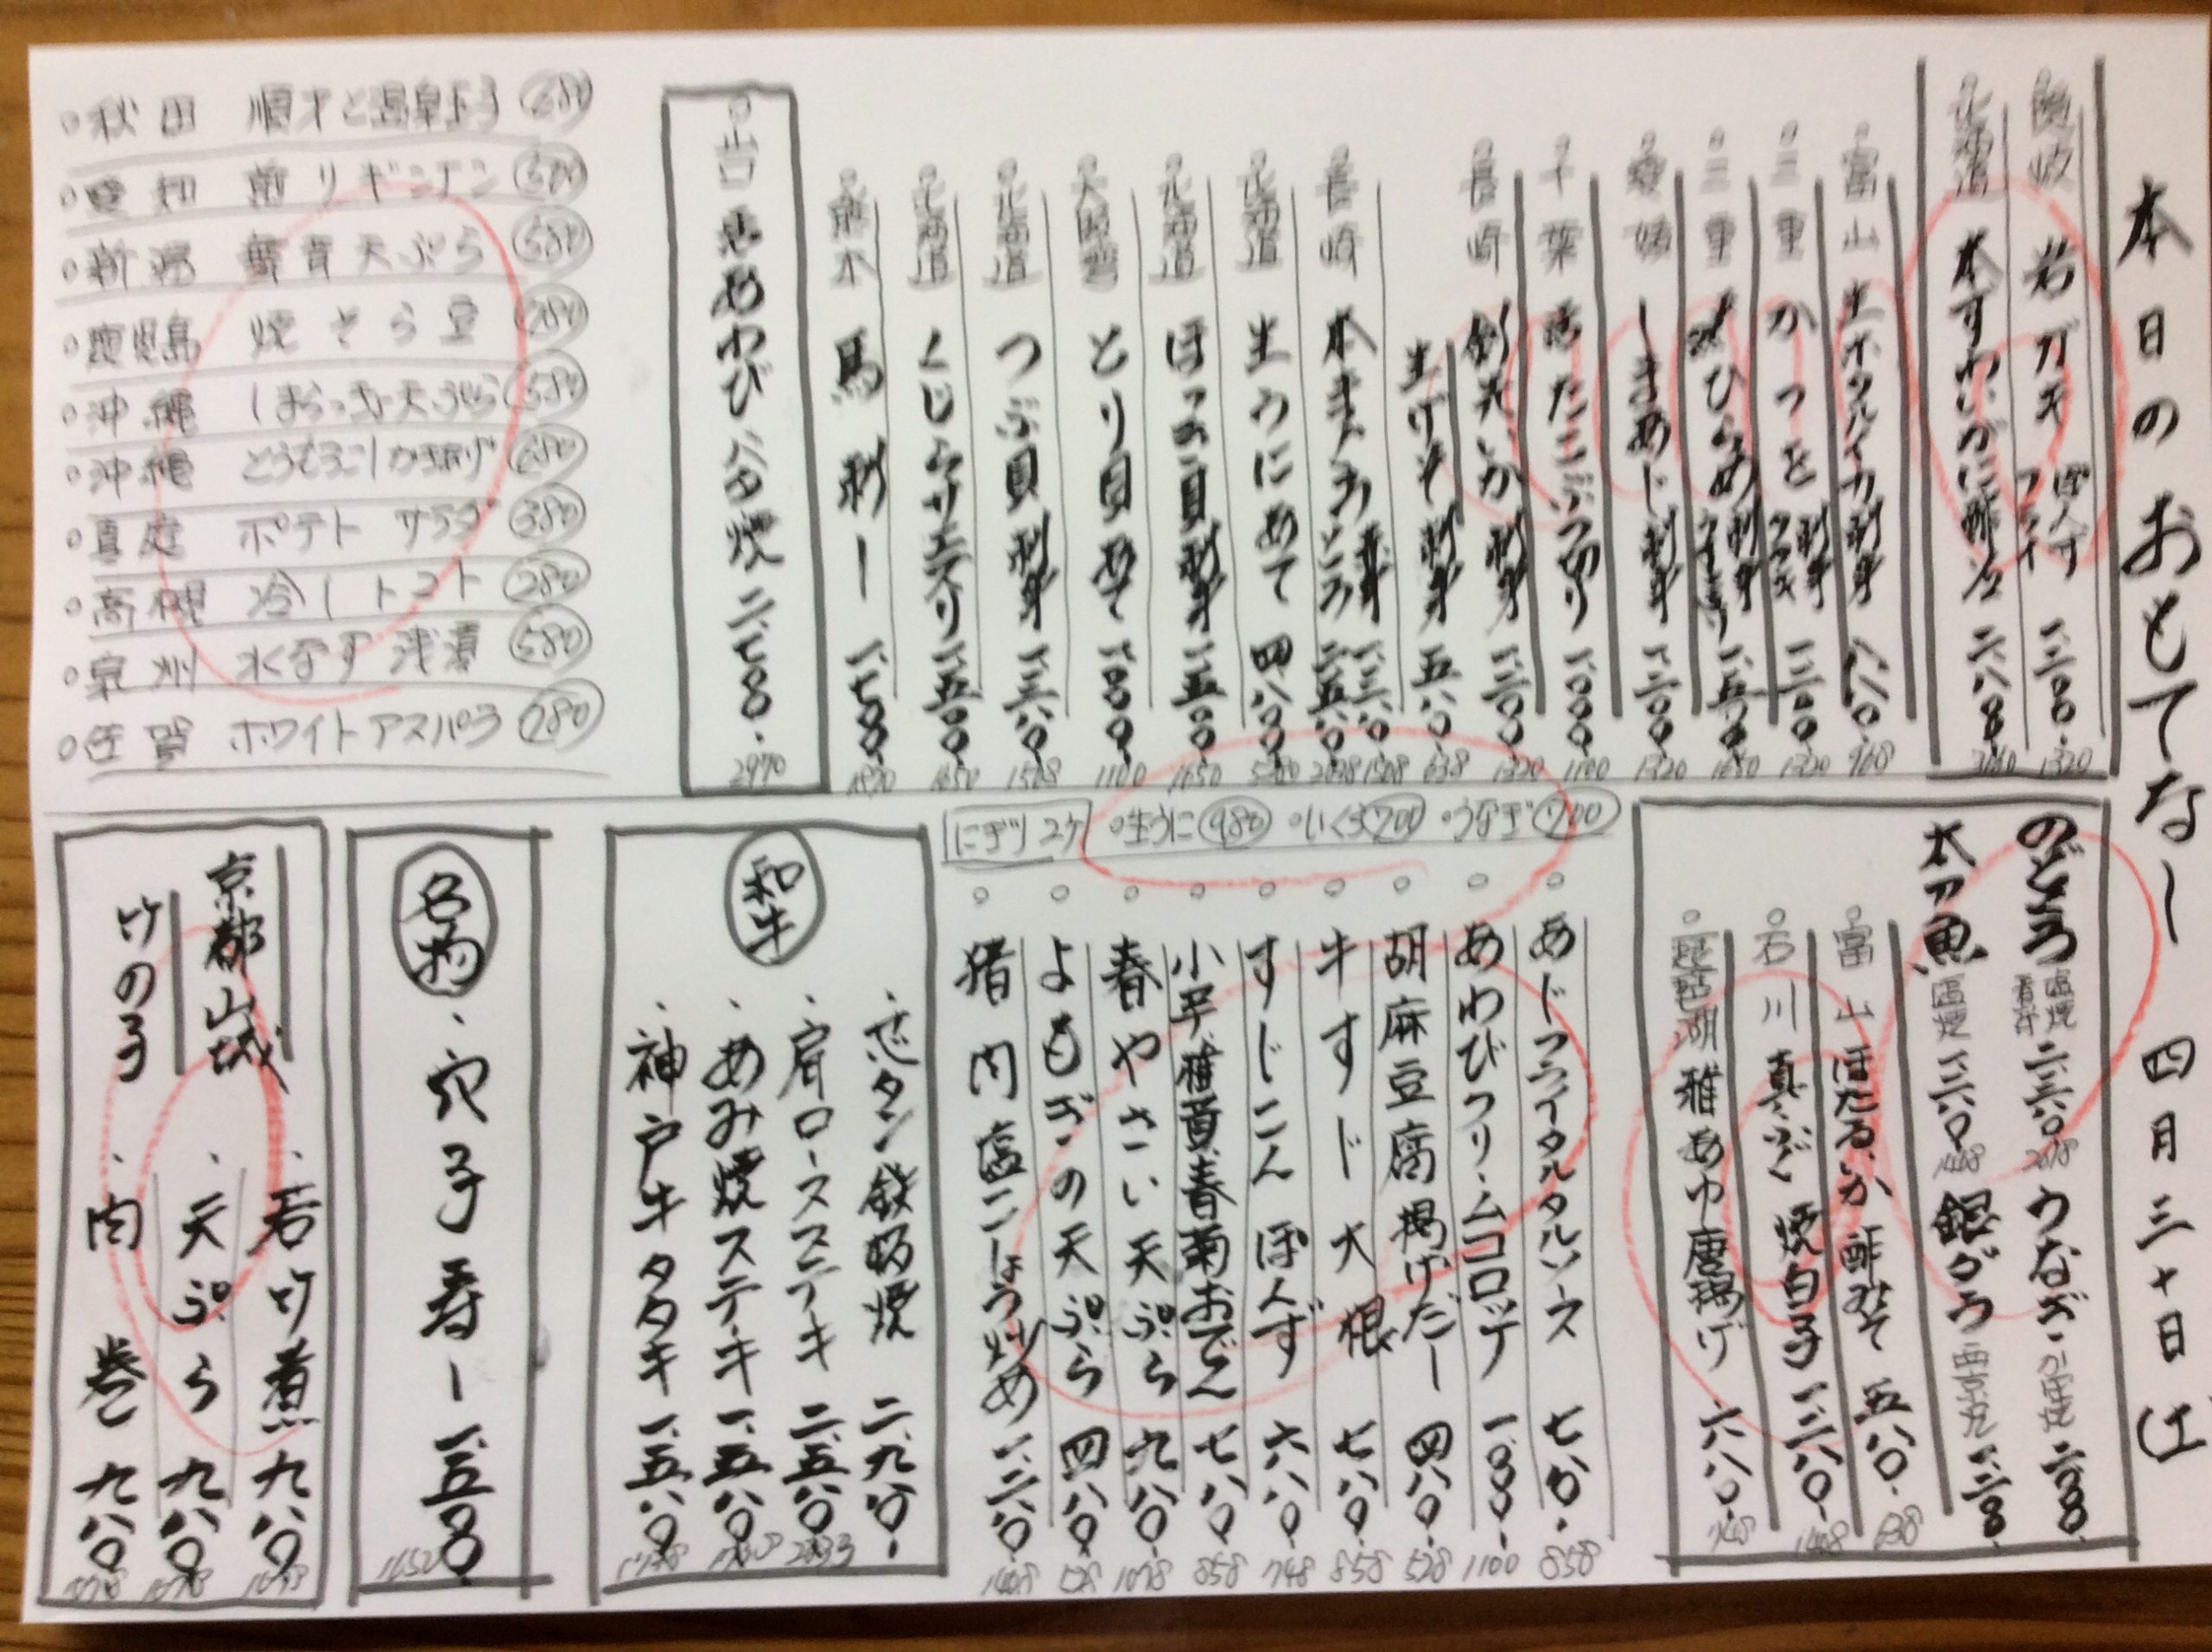 本日のおもてなし 四月三十日
隠岐 岩ガキ ぽんず フライ 一、二〇〇. 1320
北海道 本ずわいがに酢 二、八八〇.
富山 生ホタルイカ刺身 八八〇. 968
三重 かつを 刺身 タタキ 一、二〇〇. 1320
三重 ひらめ 刺身 一、五〇〇. 1650
愛媛 しまあじ刺身 一、二〇〇. 1320
千葉 活たこぶつ切り 一、〇〇〇. 1100
長崎 剣先いか刺身 一、二〇〇. 1320
生げそ刺身 五八〇. 638
長崎 本まぐろ とろ 赤身
北海道 生うにあて 四、八〇〇.
北海道 ほっき貝刺身 一、五〇〇. 1650
大阪湾 とり貝あて 一、〇〇〇. 1100
北海道 つぶ貝刺身 一、三八〇. 1518
北海道 くじらサエズリ 一、五〇〇. 1650
熊本 馬刺し 一、七〇〇. 1870
山口 活あわび 二、七〇〇. 2970
秋田 順才と温泉玉子
愛知 前リギンナン
新潟 舞茸天ぷら 580
鹿児島 焼そら豆
沖縄 しまらっきょ天ぷら 580
沖縄 とうもろこしかき揚げ
真庭 ポテトサラダ 380
高槻 冷しトマト 280
泉州 水なす浅漬 580
佐賀 ホワイトアスパラ
のどぐろ 塩焼 二、三八〇
うなぎ 二、〇〇〇.
太刀魚 塩焼 一、三八〇
銀ダラ 西京丸
富山 ほたるいか酢みそ 五八〇. 638
石川 真ふぐ焼白子 一、二八〇. 1408
琵琶湖 稚あゆ唐揚げ 六八〇. 748
にぎり 2ケ 生うに 980 いくら 700 うなぎ 700
あじフライタルタルソース 七八〇. 858
あわびクリームコロッケ 一、〇〇〇. 1100
胡麻豆腐揚げだし 四八〇. 528
牛すじ大根 七八〇. 858
すじこんぽんず 六八〇. 748
小芋、椎茸、春菊おでん 七八〇. 858
春やさい天ぷら 九八〇. 1078
よもぎの天ぷら 四八〇. 528
猪肉塩こしょう炒め 一、二八〇. 1408
和牛
芯タン鉄板焼 二、九八〇.
肩ロースステーキ 二、五八〇.
あみ焼ステーキ 一、五八〇. 1738
神戸牛タタキ 一、五八〇. 1738
名物
穴子寿し 一、五〇〇. 1650
京都山城
竹の子
若竹煮 九八〇 1078
天ぷら 九八〇 1078
肉巻 九八〇 1078